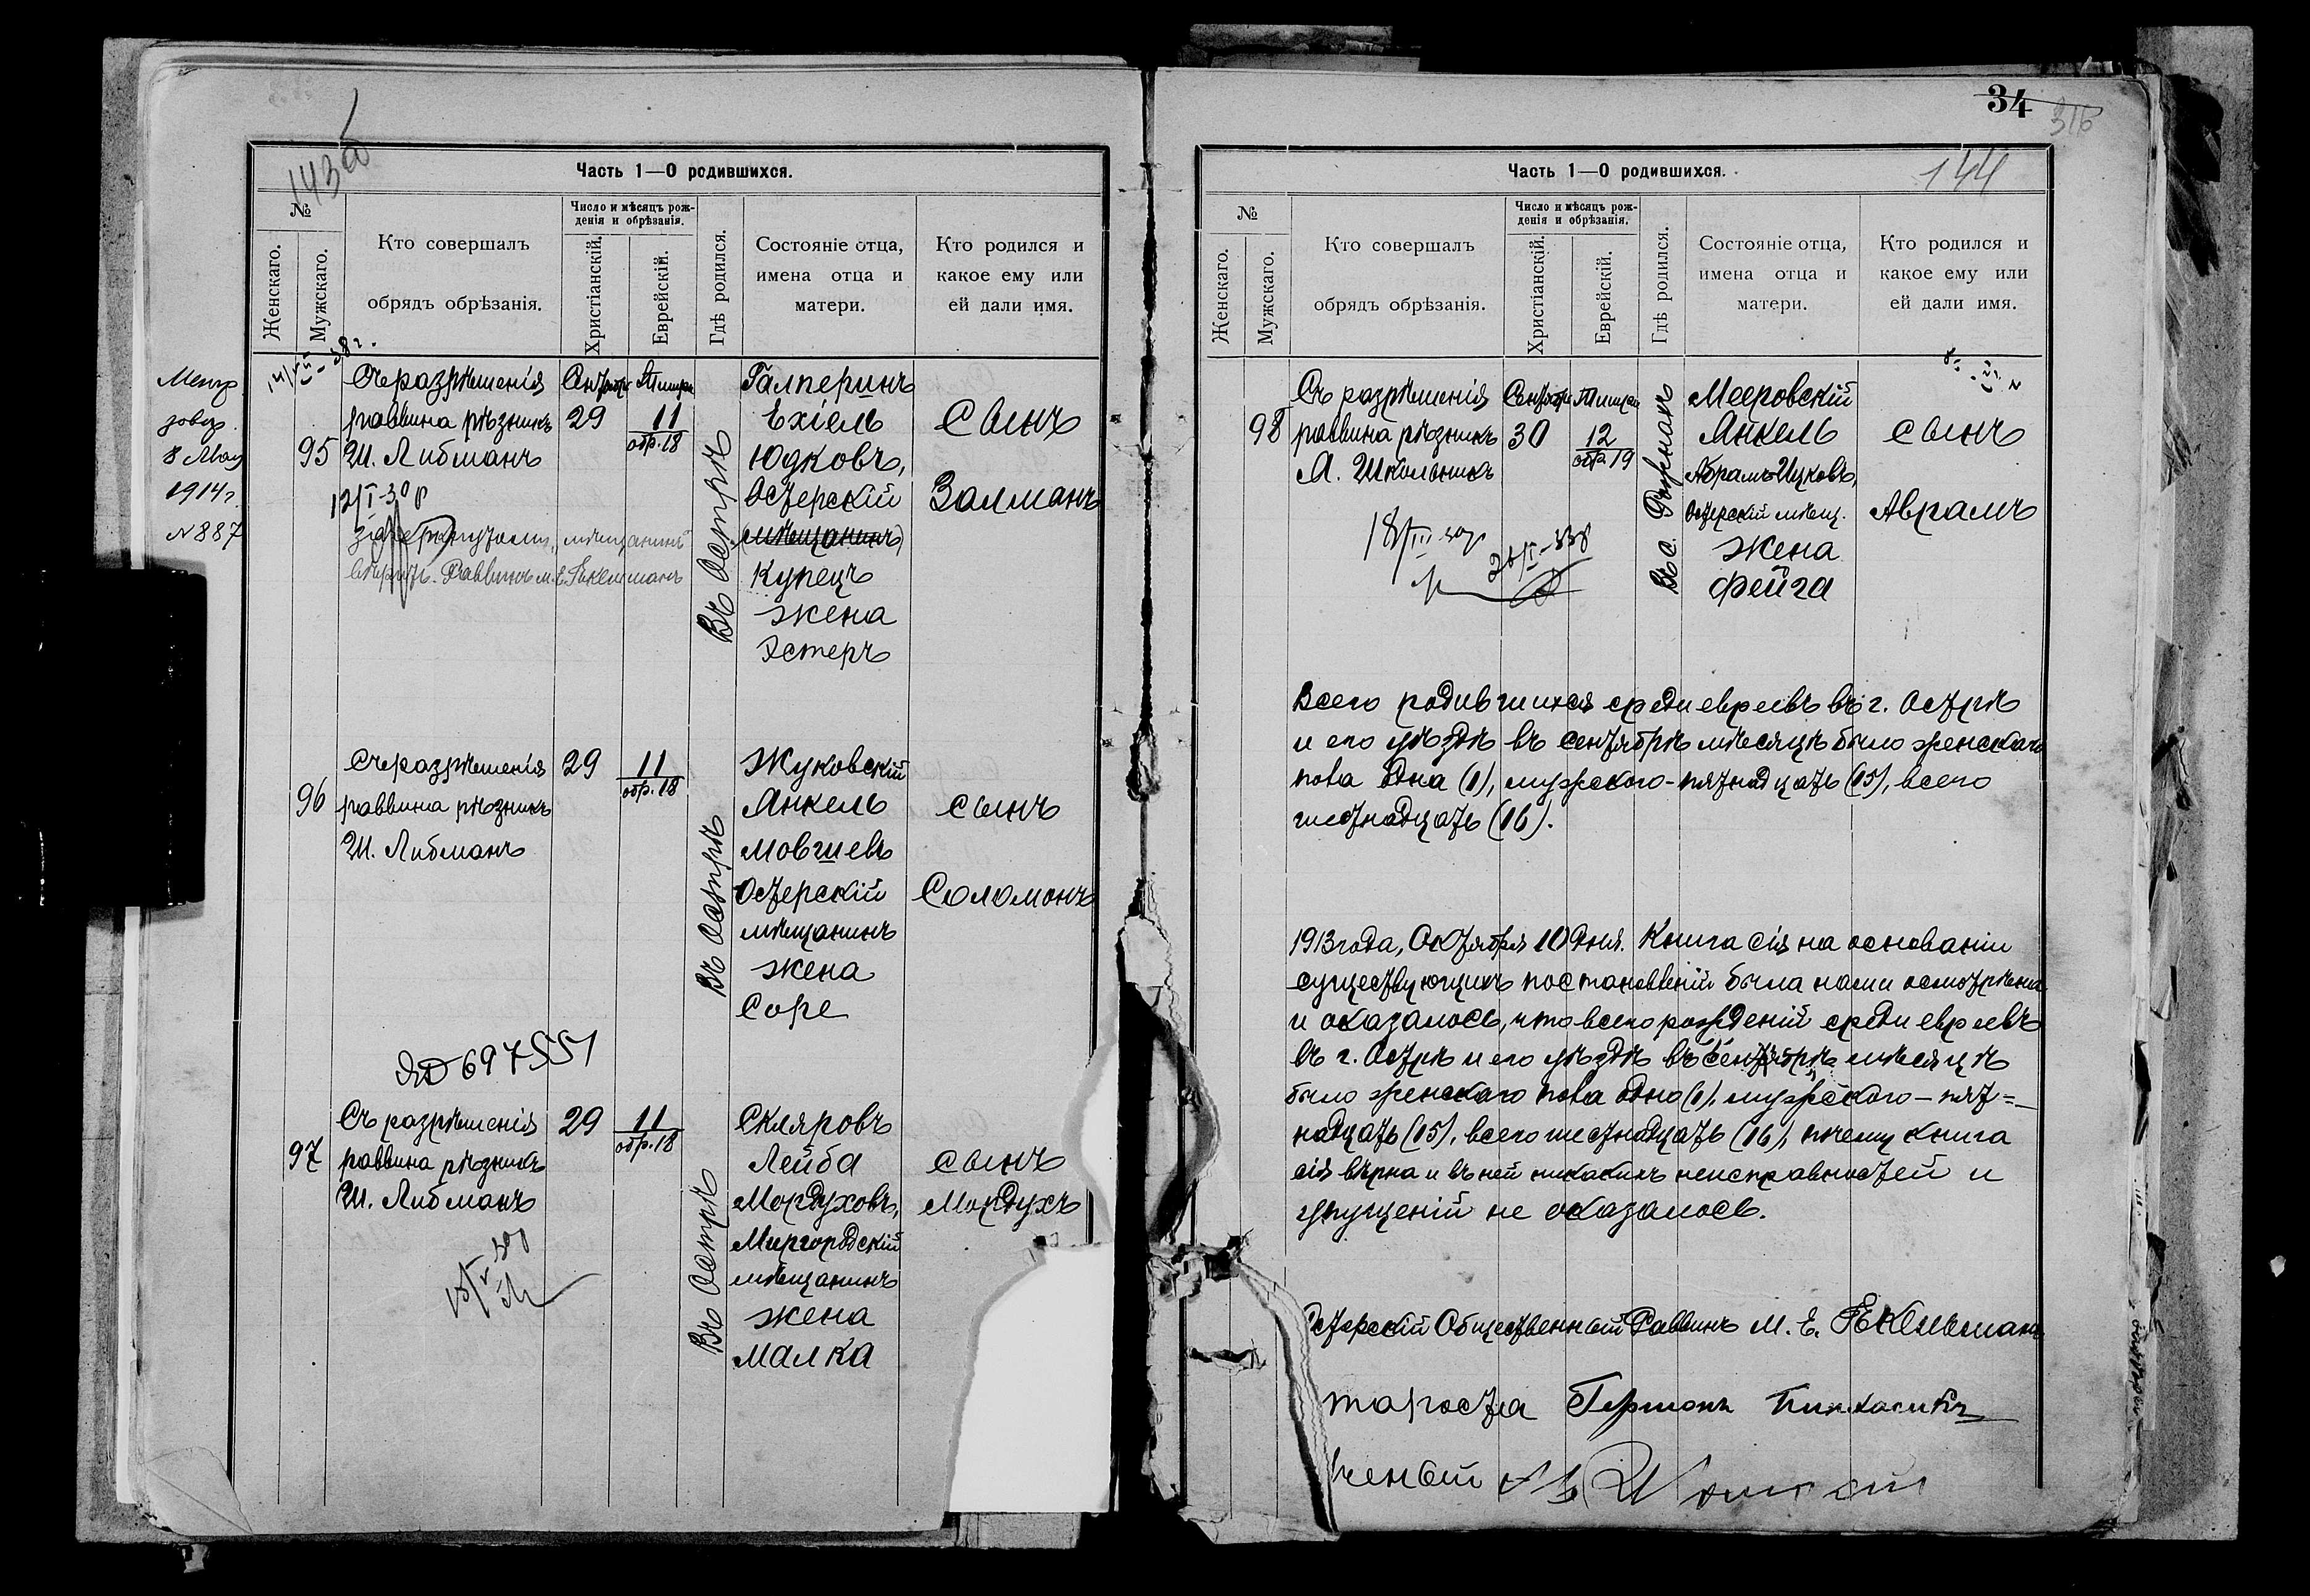 143об
Часть 1—О родившихся.
№
Женскаго.
Мужскаго.
Кто совершалъ
обрядъ обрѣзанія.
Число и мѣсяцъ рож-
денія и обрѣзанія.
Христіанскій.
Еврейскій.
Гдѣ родился.
Состояніе отца,
имена отца и
матери.
Кто родился и
какое ему или
ей дали имя.
8 Мая
1914 г.
N 887
95
Съ разрѣшенія
раввина рѣзникъ
Ш. Либманъ
12/I-30г
мѣщанинъ
Раввинъ М. Е. Гекельманъ
Сентябр Тишри
29
11
обр. 18
Въ Острѣ
Галперинъ
Ехіель
Юдковъ,
Остерскій
(мѣщанинъ)
Купецъ
жена
Эстеръ
сынъ
Залманъ
96
Съ разрѣшенія
раввина рѣзникъ
Ш. Либманъ
29
11
обр. 18
Въ Острѣ
Жуковскій
Янкель
Мовшевъ
Остерскій
мѣщанинъ
жена
Соре
сынъ
Соломонъ
697551
97
Съ разрѣшенія
раввина рѣзникъ
Ш. Либманъ
29
11
обр. 18
Въ Острѣ
Скляровъ
Лейба
Мордуховъ,
Миргородскій
мѣщанинъ
жена
Малка
сынъ
Мордухъ
34
316
144
Часть 1—О родившихся.
№
Женскаго.
Мужскаго.
Кто совершалъ
обрядъ обрѣзанія.
Число и мѣсяцъ рож-
денія и обрѣзанія.
Христіанскій.
Еврейскій.
Гдѣ родился.
Состояніе отца,
имена отца и
матери.
Кто родился и
какое ему или
ей дали имя.
98
Съ разрѣшенія
раввина рѣзникъ
А. Школьникъ
Сентябр Тишри
30
12
обр. 19
Въ с.
Мееровскій
Янкель
Абрамъ-Ицковъ,
Остерскій мѣщ.
жена
Фейга
сынъ
Аврамъ
Всего родившихся среди евреевъ въ г. Острѣ
и его уѣздѣ въ сентябрѣ мѣсяцѣ было женскаго
пола одна (1), мужского - пятнадцать (15), всего
шестнадцать (16).
1913 года, Октября 10 дня. Книга сія на основаніи
существующихъ постановленій была нами осмотрѣна
и оказалось, что всего рожденій среди евреевъ
въ г. Острѣ и его уѣздѣ въ сентябрѣ мѣсяцѣ
было женскаго пола одно (1), мужского - пят=
надцать (15), всего шестнадцать (16), почему книга
сія вѣрна и въ ней никакихъ неисправностей и
упущеній не оказалось.
Остерскій Общественный Раввинъ М. Е. Гекельманъ
тароста
ченый